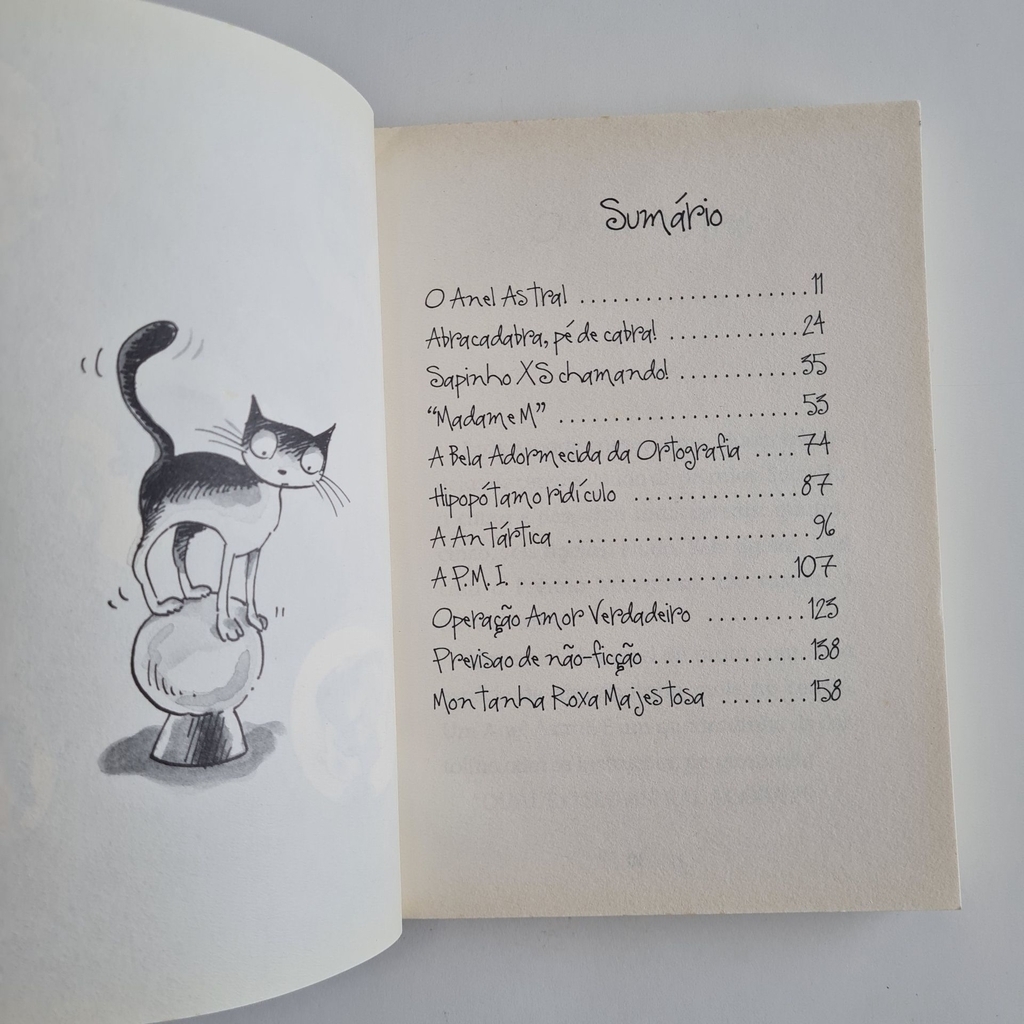 Sumário
O Anel Astral ..................... 11
Abracadabra, pé de cabra! ............ 24
Sapinho XS chamando! ........... 35
“Madame M” ...................... 53
A Bela Adormecida da Ortografia .... 74
Hipopótamo ridículo ............... 87
A Antártica ...................... 96
A P.M.I. ......................... 107
Operação Amor Verdadeiro ......... 123
Previsao de não-ficção .............. 138
Montanha Roxa Majestosa ........ 158